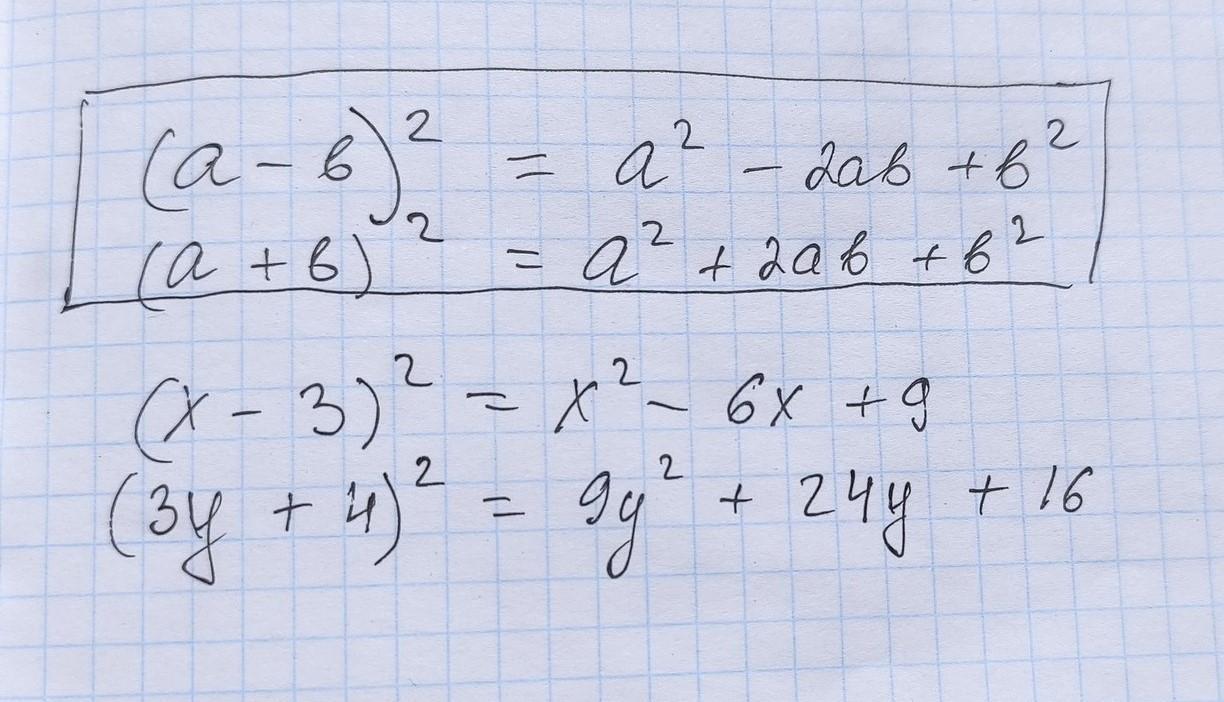 (a - b)² = a² - 2ab + b²
(a + b)² = a² + 2ab + b²
(x - 3)² = x² - 6x + 9
(3y + 4)² = 9y² + 24y + 16